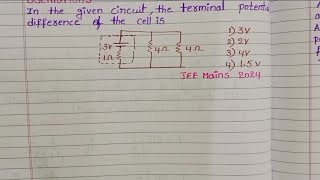 Oscillations
In the given circuit, the terminal potential
difference of the cell is
3V
1Ω
4Ω
4Ω
1) 3V
2) 2V
3) 4V
4) 1.5 V
JEE Mains 2024